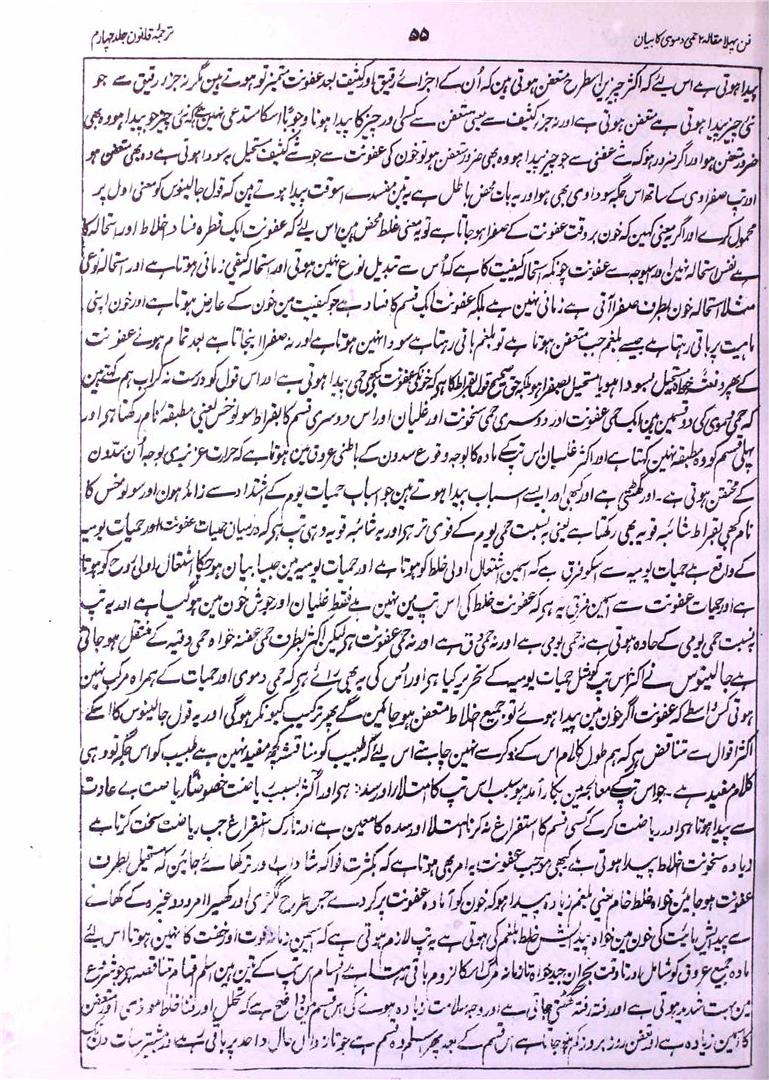 فن پہلا مقالہ ۲ حمی دموی کا بیان ۵۵ ترجمۂ قانون جلد چہارم
پیدا ہوتی ہے اس لیے کہ اکثر چیزین اسطرح متعفن ہوتی ہین کہ اُن کے اجزائے رقیق اور کثیف بعد عفونت متمیز تو ہوتے ہین مگر نہ جزء رقیق سے جو
نئی چیز پیدا ہوتی ہے متعفن ہوتی ہے اور نہ جزء کثیف سے پس متعفن سے کسی اور چیز کا پیدا ہونا وجوباً اسکا مستدعی نہین ہے کہ نئی چیز جو پیدا ہو وہ بھی
ضرور متعفن ہو اور اگر ضرور ہو کہ شے عفنی سے جو چیز پیدا ہو وہ بھی ضرور متعفن ہو تو خون کی عفونت سے جو شے کثیف مستحیل بر سودا ہوتی ہے وہ بھی متعفن ہو
اور تپ صفراوی کے ساتھ اس جگہ سوداوی بھی ہو اور یہ بات محض باطل ہے یہ تین مفسدے اسوقت پیدا ہوتے ہین کہ قول جالینوس کو معنی اول پر
محمول کرے اور اگر یہ معنی کہین کہ خون بروقت عفونت کے صفرا ہو جاتا ہے تو یہ معنی غلط محض ہین اس لیے کہ عفونت ایک فساد اخلاط اور استحالہ کا
ہے نفس استحالہ نہین اور عفونت چونکہ استحالہ کیفیت کا ہے کہ اُس سے تبدیل نوع نہین ہوتی اور استحالہ کیفی زمانی ہوتا ہے اور استحالہ نوعی
مثلاً استحالہ خون بطرف صفرا آنی ہے زمانی نہین ہے بلکہ عفونت ایک قسم کا فساد ہے جو کیفیت مین خون کے عارض ہوتا ہے اور خون اپنی
ماہیت پر باقی رہتا ہے جیسے بلغم جب متعفن ہوتا ہے تو بلغم باقی رہتا ہے سودا نہین ہوتا ہے اور نہ صفرا بنجاتا ہے بعد تمام ہونے عفونت
کے پھر دفعۃً خواہ مستحیل بسودا ہو یا مستحیل بصفرا ہو بلکہ صحیح قول بقراط کا ہے کہ خون کی عفونت سے بھی حمی پیدا ہوتی ہے اور اس قول کو درست نہ کر اب ہم کہتے ہین
کہ حمی دموی کی دو قسمین ہین ایک حمی عفونت اور دوسری حمی سخونت اور غلیان اور اس دوسری قسم کا بقراط سونوخس یعنی مطبقہ نام رکھتا ہی اور
پہلی قسم کو وہ مطبقہ نہین کہتا ہے اور اکثر غلیان اس تپ کے مادہ کا بوجہ وقوع سدون کے باطنی عروق مین ہوتا ہے کہ حرارت عزیزی بوجہ اُن سدون
کے محقن ہوتی ہے۔ اور گھٹتی ہے اور کبھی اور ایسے اسباب پیدا ہوتے ہین جو اسباب حمیات یوم کے اشتداد سے زائد ہون اور سونوخس کا
نام کبھی بقراط شائبہ قویہ بھی رکھتا ہے یعنی بہ نسبت حمی یوم کے قوی تر ہی اور یہ شائبہ قویہ وہی تپ ہی کہ درمیان حمیات عفونت اور حمیات یومیہ
کے واقع ہے حمیات یومیہ سے اسکو فرق ہے کہ اسمین اشتعال اولی خلط کو ہوتا ہے اور حمیات یومیہ مین جیسا بیان ہو چکا اشتعال اولی روح کو ہوتا
ہے اور حمیات عفونت سے اسمین فرق یہ ہی کہ عفونت خلط کی اس تپ مین نہین ہے فقط غلیان اور جوش خون مین ہو گیا ہے اور یہ تپ
بہ نسبت حمی یومی کے حادہ ہوتی ہے نہ حمی یومی ہے اور نہ حمی دق ہے اور نہ حمی عفونت ہی لیکن اکثر بطرف حمی عفنہ خواہ حمی دقیہ کے منتقل ہو جاتی
ہے جالینوس نے اکثر اس تپ کو مثل حمیات یومیہ کے تحریر کیا ہی اور اُس کی یہ بھی رائے ہی کہ حمی دموی اور حمیات کے ہمراہ مرکب نہین
ہوتی کس واسطے کہ عفونت اگر خون مین پیدا ہوئے تو جمیع اخلاط متعفن ہو جائین گے پھر ترکیب کیونکر ہوگی اور یہ قول جالینوس کا اسکے
اکثر اقوال سے متناقض ہی کہ ہم طول کلام اس کے ذکر سے نہین چاہتے اس لیے کہ طبیب کو مناقشہ کچھ مفید نہین ہے طبیب کو اس جگہ تو وہی
کلام مفید ہے۔ جو اس تپ کے معالجہ مین بکار آمد ہو سبب اس تپ کا امتلا اور سدہ ہی اور اکثر بسبب ریاضت خصوصاً ریاضت بے عادت
سے پیدا ہوتا ہی اور ریاضت کرکے کسی قسم کا استفراغ نہ کرنا امتلا اور سدہ کا معین ہے اور تارک استفراغ جب ریاضت سخت کرتا ہے
زیادہ سخونت اخلاط پیدا ہوتی ہے کبھی موجب عفونت یہ امر بھی ہوتا ہے کہ بکثرت فواکہ شاداب اور تر کھائے جائین کہ مستحیل بطرف
عفونت ہو جائین خواہ خلط خام یعنی بلغم زیادہ پیدا ہو کہ خون کو آمادہ عفونت پر کردے جس طرح ککڑی اور کھیرا امرود وغیرہ کے کھانے
سے پیدایش مائیت کی خون مین خواہ پیدایش خلط بلغم کی ہوتی ہے یہ تپ لازم ہوتی ہے کہ اسمین زمانہ فتور اور خفت کا نہین ہوتا اس لیے
مادہ جمیع عروق کو شامل اور تا وقت بحران جید خواہ تا زمانہ مرگ اسکا لزوم باقی رہتا ہے اقسام اس تپ کے تین ہین اسلم اقسام متناقصہ ہی جو شروع
مین بہت شدید ہوتی ہے اور رفتہ رفتہ گھٹتی جاتی ہے اور وجہ سلامت زیادہ ہونے کی اس قسم مین واضح ہے کہ تحلل اور فنا خلط موذی اور متعفن
کا اسمین زیادہ ہے اور تعفن روز بروز کم ہوتا جاتا ہے اس قسم کے بعد پھر اسلم وہ قسم ہے جو تا زوال حال واحد پر باقی رہے اور بیشتر سات دن تک